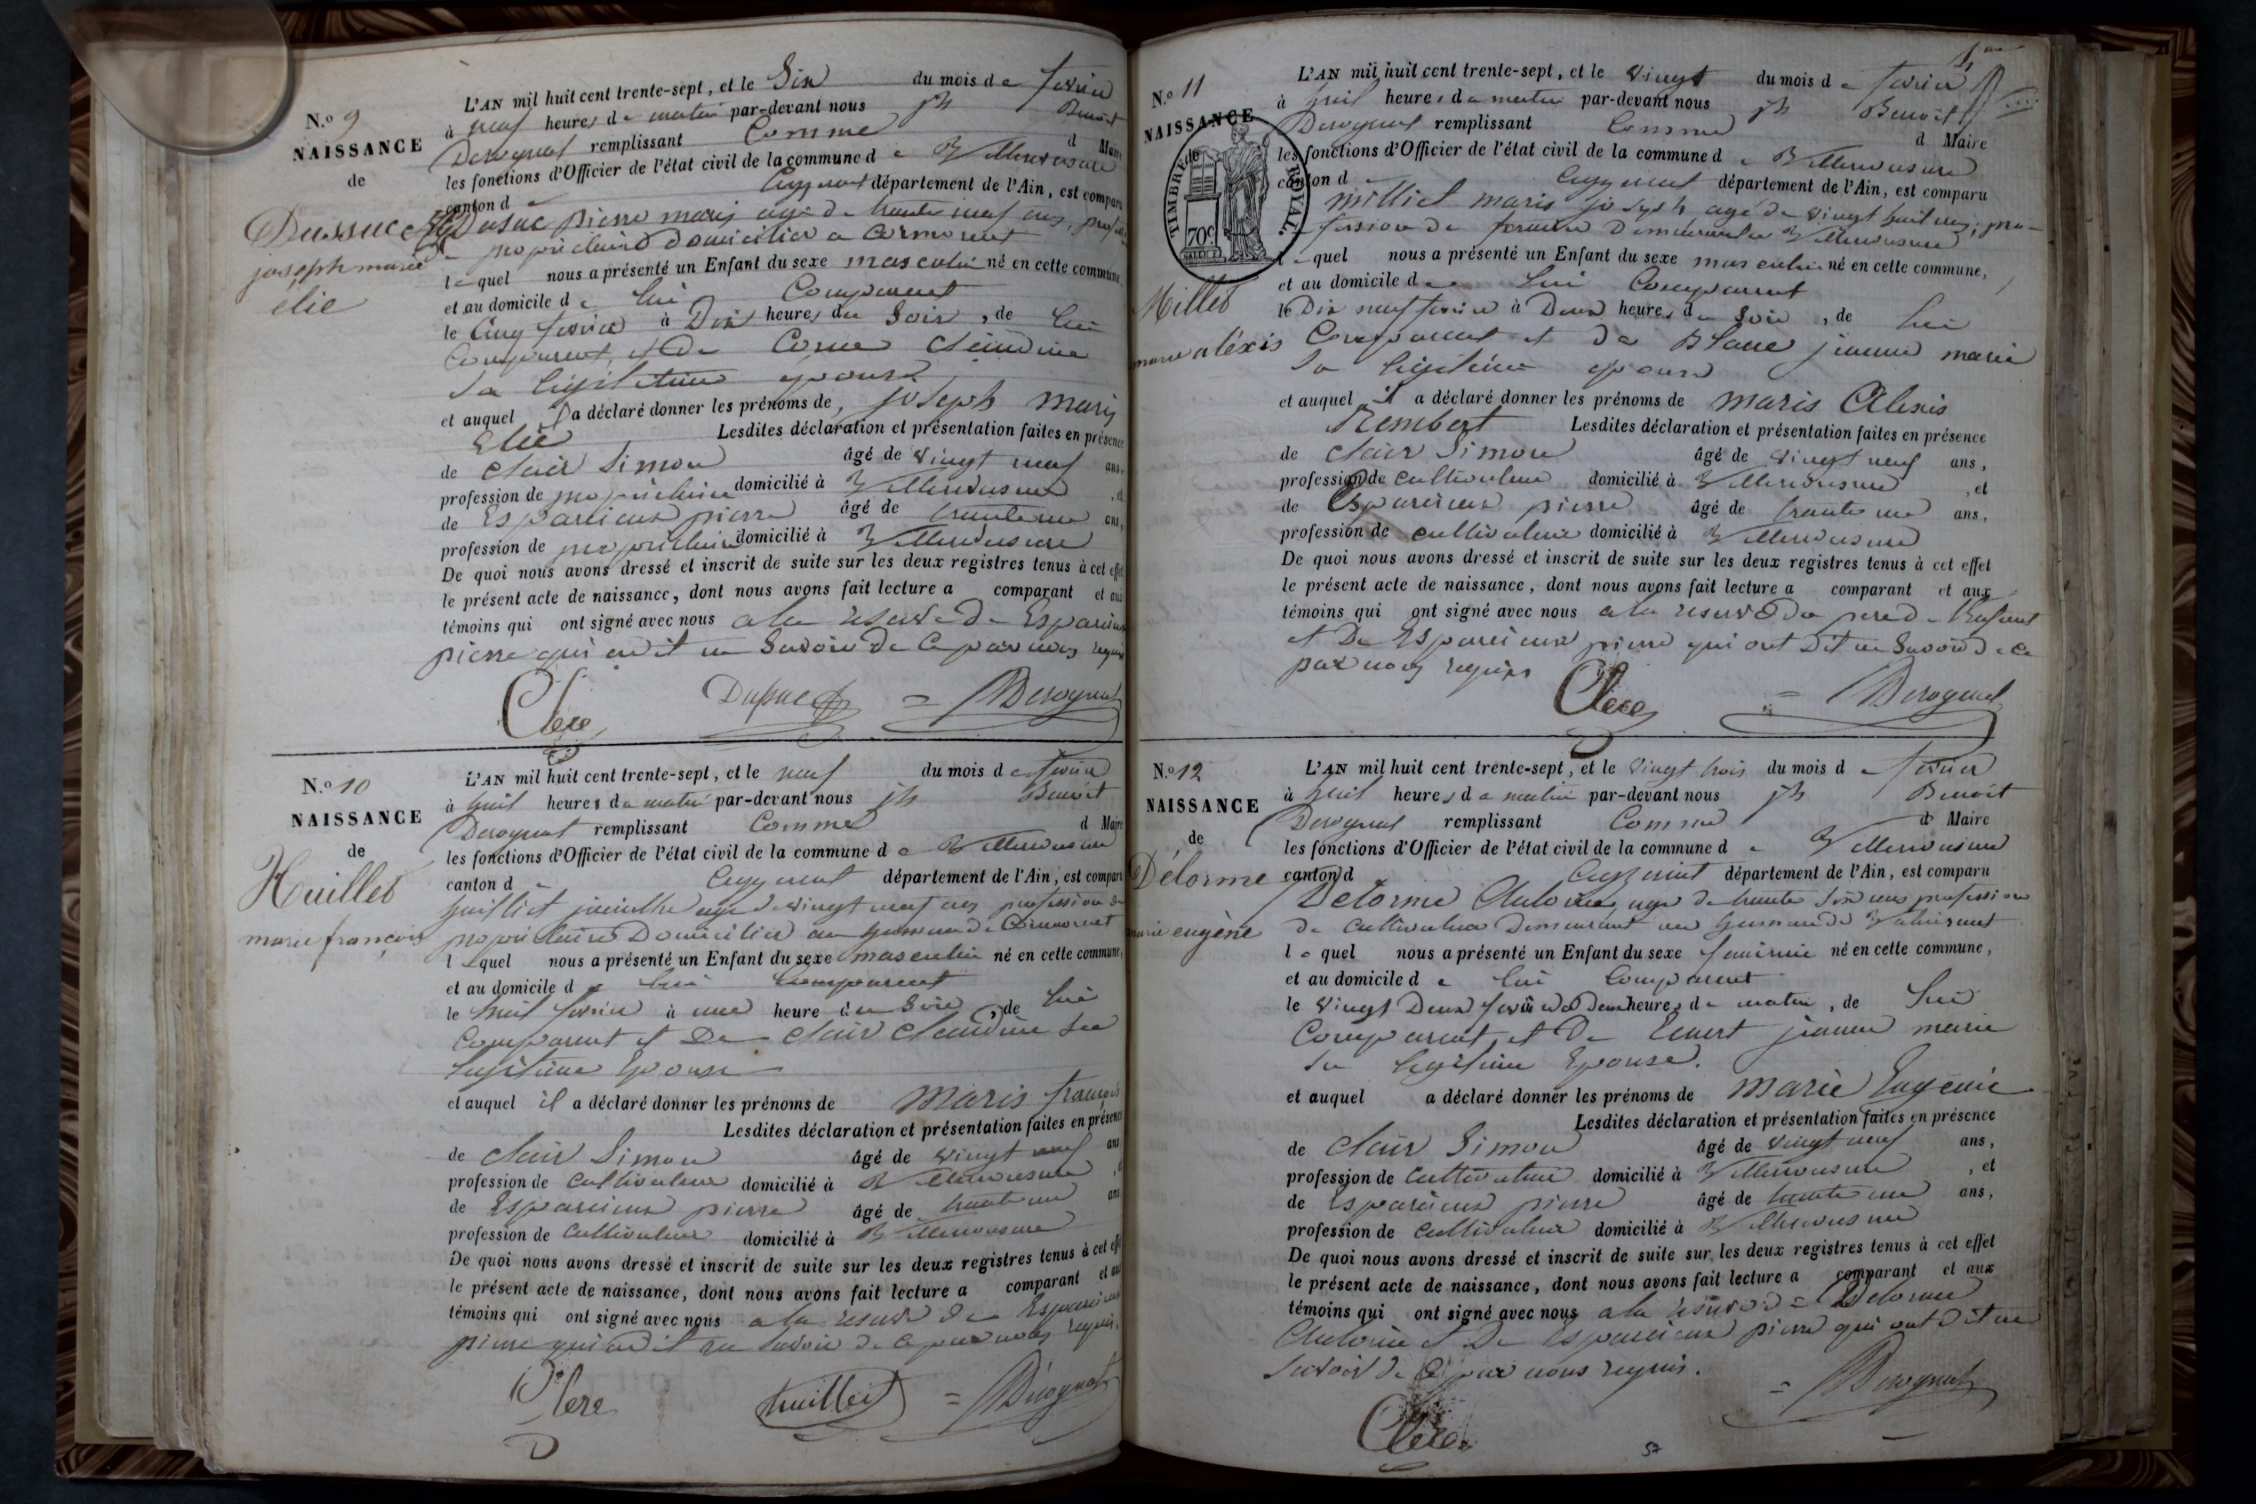 N.º 9
NAISSANCE
de
Dussuc
joseph marie
elie
L'AN mil huit cent trente-sept, et le Six du mois de fevrier
à neuf heures de matin par-devant nous jh Benoit
Derognat remplissant Comme d Maire
les fonctions d'Officier de l'état civil de la commune de Villereversure
canton d Ceyzeriat département de l'Ain, est comparu
Dussuc pierre marie agé de trente neuf ans, profession
de propriétaire domicilier a Cormoront
lequel nous a présenté un Enfant du sexe masculin né en cette commune,
et au domicile de lui Comparant
le Cinq fevrier à Dix heures du Soir, de lui
Comparant, et De Corne Claudine
Sa légitime epouse
et auquel il a déclaré donner les prénoms de joseph marie
Elie Lesdites déclaration et présentation faites en présence
de Clair Simon âgé de vingt neuf ans,
profession de propriétaire domicilié à Villereversure, et
de Esparcieux pierre âgé de trente un ans,
profession de propriétaire domicilié à Villereversure
De quoi nous avons dressé et inscrit de suite sur les deux registres tenus à cet effet
le présent acte de naissance, dont nous avons fait lecture a comparant et aux
témoins qui ont signé avec nous a la reserve De Esparcieux
pierre qui a dit ne Savoir de Ce par nous requis
Clere Dussuc Derognat
N.º 10
NAISSANCE
de
Huillet
marie françois
L'AN mil huit cent trente-sept, et le neuf du mois de fevrier
à huit heures de matin par-devant nous jh Benoit
Derognat remplissant Comme d Maire
les fonctions d'Officier de l'état civil de la commune de Villereversure
canton d Ceyzeriat département de l'Ain, est comparu
huilliet jacinthe agé de vingt neuf ans profession de
propriétaire Domicilier au hameau de Cormoront
lequel nous a présenté un Enfant du sexe masculin né en cette commune,
et au domicile de lui Comparant
le huit fevrier à une heure du Soir, de lui
Comparant et De Clair Claudine Sa
légitime Epouse
et auquel il a déclaré donner les prénoms de Marie françois
Lesdites déclaration et présentation faites en présence
de Clair Simon âgé de vingt neuf ans
profession de Cultivateur domicilié à Villereversure, et
de Esparcieux pierre âgé de trente un ans
profession de Cultivateur domicilié à Villereversure
De quoi nous avons dressé et inscrit de suite sur les deux registres tenus à cet effet
le présent acte de naissance, dont nous avons fait lecture a comparant et aux
témoins qui ont signé avec nous a la reserve De Esparcieux
pierre qui a dit ne Savoir de Ce par nous requis.
Clere huilliet Derognat
N.º 11
NAISSANCE
de
TIMBRE ROYAL
70c
Milliet
marie aléxis
L'AN mil huit cent trente-sept, et le vingt du mois de fevrier
à huit heures de matin par-devant nous jh Benoit
Derognat remplissant Comme d Maire
les fonctions d'Officier de l'état civil de la commune de Villereversure
canton d Ceyzeriat département de l'Ain, est comparu
Milliet marie joseph agé de vingt huit ans, pro-
fession de Demeurant a Villereversure
lequel nous a présenté un Enfant du sexe masculin né en cette commune,
et au domicile de lui Comparant
le Dix neuf fevrier à Deux heures du Soir, de lui
Comparant et De Blanc jeanne marie
Sa légitime epouse
et auquel il a déclaré donner les prénoms de marie Alexis
Rembert Lesdites déclaration et présentation faites en présence
de Clair Simon âgé de vingt neuf ans,
profession de Cultivateur domicilié à Villereversure, et
de Esparcieux pierre âgé de trente un ans,
profession de Cultivateur domicilié à Villereversure
De quoi nous avons dressé et inscrit de suite sur les deux registres tenus à cet effet
le présent acte de naissance, dont nous avons fait lecture a comparant et aux
témoins qui ont signé avec nous a la reserve Du pere de lenfant
et De Esparcieux pierre qui ont Dit ne Savoir de Ce
par nous requis
Clere Derognat
N.º 12
NAISSANCE
de
Délorme
marie eugène
L'AN mil huit cent trente-sept, et le vingt trois du mois de fevrier
à huit heures de matin par-devant nous jh Benoit
Derognat remplissant Comme d Maire
les fonctions d'Officier de l'état civil de la commune de Villereversure
canton d Ceyzeriat département de l'Ain, est comparu
Delorme Antoine, agé de trente Six ans profession
de Cultivateur Demeurant au hameau de
lequel nous a présenté un Enfant du sexe feminin né en cette commune,
et au domicile de lui Comparant
le vingt Deux fevrier à Deux heures de matin, de lui
Comparant, et De jeanne marie
Sa légitime Epouse.
et auquel a déclaré donner les prénoms de Marie Eugenie
Lesdites déclaration et présentation faites en présence
de Clair Simon âgé de vingt neuf ans,
profession de Cultivateur domicilié à Villereversure, et
de Esparcieux pierre âgé de trente un ans,
profession de Cultivateur domicilié à Villereversure
De quoi nous avons dressé et inscrit de suite sur les deux registres tenus à cet effet
le présent acte de naissance, dont nous avons fait lecture a comparant et aux
témoins qui ont signé avec nous a la reserve de Delorme
Antoine et De Esparcieux pierre qui ont Dit ne
Savoir de Ce par nous requis.
Derognat
Clere
57